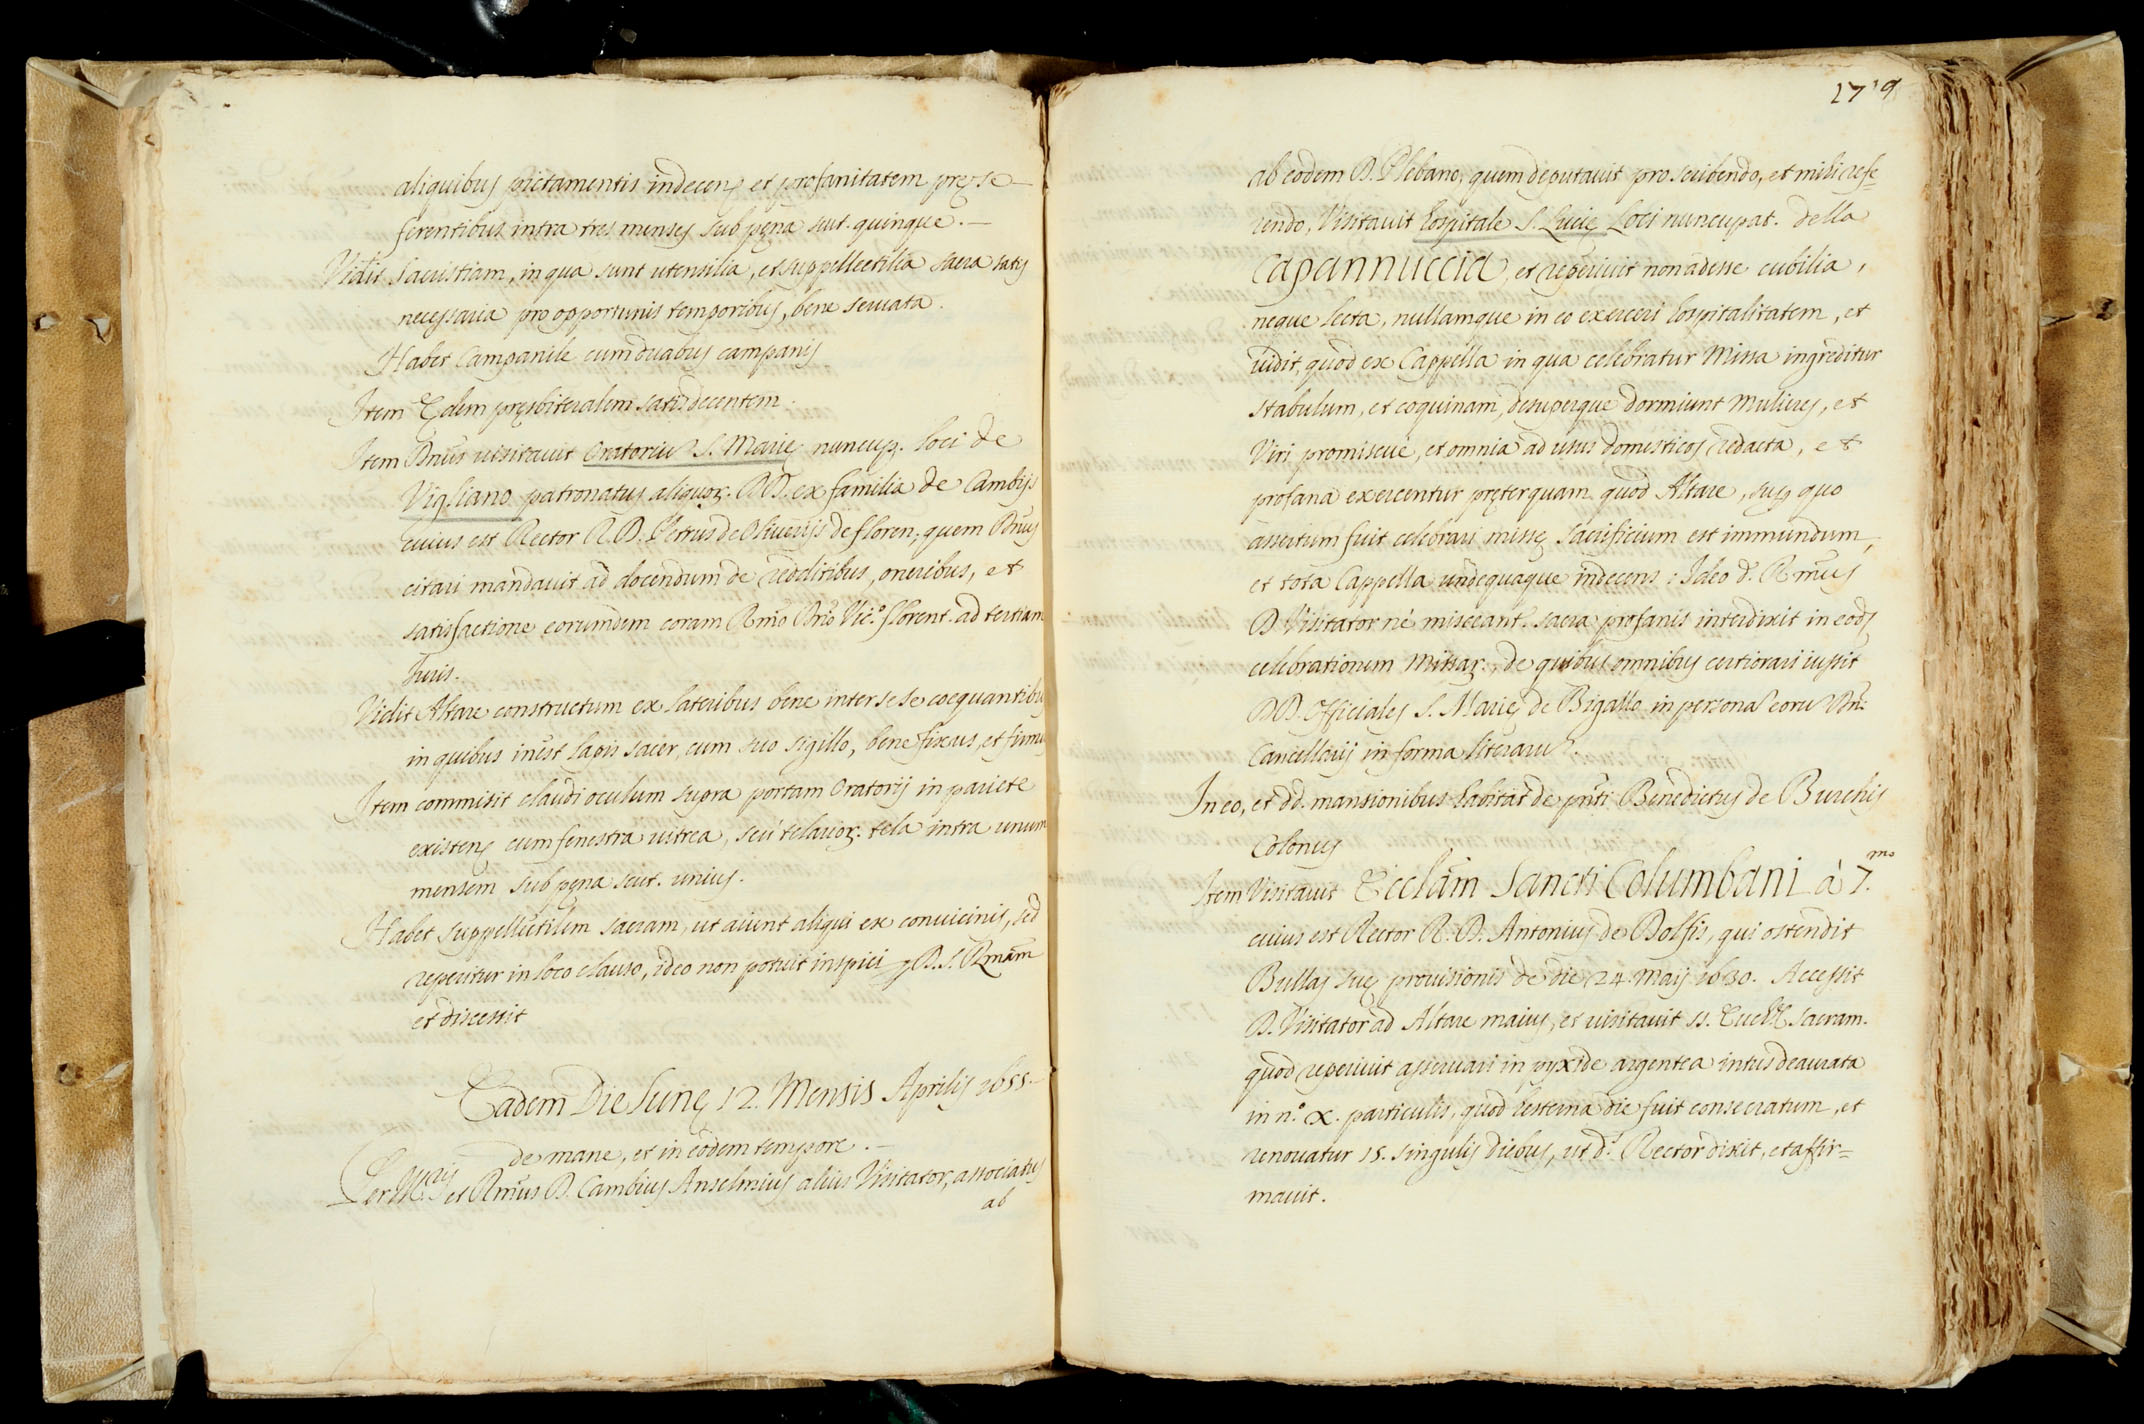 aliquibus pictamentis indecens et profanitatem pręse
ferentibus intra tres menses sub pęna scut. quinque.
Vidit sacristiam, in qua sunt utensilia, et suppellectilia sacra satis
necessaria pro opportunis temporibus, bene seruata.
Habet Campanile cum duabus campanis
Item Ędem pręsbiteralem satis decentem.
Item Dnũs visitauit Oratoriũ S. Marię nuncup. loci de
Vigliano patronatus aliquor. DD. ex familia de Cambijs
cuius est Rector R. D. Petrus de Oliuerijs de floren. quem Dnũs
citari mandauit ad docendum de redditibus, oneribus, et
satisfactione eorumdem coram Rmõ Dnõ Vic.º florent. ad tertiam
Iuris.
Vidit Altare constructum ex lateribus bene inter se se coequantibus
in quibus inest lapis sacer, cum suo sigillo, bene fixus, et firmus
Item commisit claudi oculum supra portam Oratorij in pariete
existens cum fenestra uitrea, seù telarior. tela intra unum
mensem sub pęna scut. unius.
Habet suppellectilem sacram, ut aiunt aliqui ex conuicinis, sed
reperitur in loco clauso, ideo non potuit inspici p D. S. Rmãm
et discessit
Eadem Die Lunę 12. Mensis Aprilis 1655.
de mane, et in eodem tempore.
Per Ill.ris et Rmũs D. Cambius Anselmius alius Visitator, associatus
ab
179
ab eodem D. Plebano, quem deputauit pro scribendo, et mihi refe
rendo, Visitauit hospitale S. Lucię Loci nuncupat. della
Capannuccia, et reperiuit non adesse cubilia,
neque lecta, nullamque in eo exerceri hospitalitatem, et
uidit, quod ex Cappella in qua celebratur Missa ingreditur
stabulum, et coquinam, desuperque dormiunt Mulieres, et
Viri promiscuè, et omnia ad usus domesticos redacta, et
profana exercentur pręterquam quod Altare, sup quo
assertum fuit celebrari missę sacrificium est immundum,
et tota Cappella undequaque indecens: Ideo d. Rmũs
D. Visitator nè misceant. sacra profanis interdixit in eod.
celebrationem Missar., de quibus omnibus certiorari iussit
DD. Officiales S. Marię de Bigallo in persona eorũ Dni
Cancellarij in forma literarũ.
In eo, et dd. mansionibus habitat de pnti Benedictus de Burchis
Colonus
Item Visitauit Ecclam Sancti Columbani à 7.mo
cuius est Rector R. D. Antonius de Bolsis, qui ostendit
Bullas suę prouisionis de die 24. Maij 1630. Accessit
D. Visitator ad Altare maius, et uisitauit SS. Euch.ę Sacram.
quod reperiuit asseruari in pyxide argentea intus deaurata
in n.º X. particulis, quod hesterna die fuit consecratum, et
renouatur 15. singulis diebus, ut d. Rector dixit, et affir=
mauit.